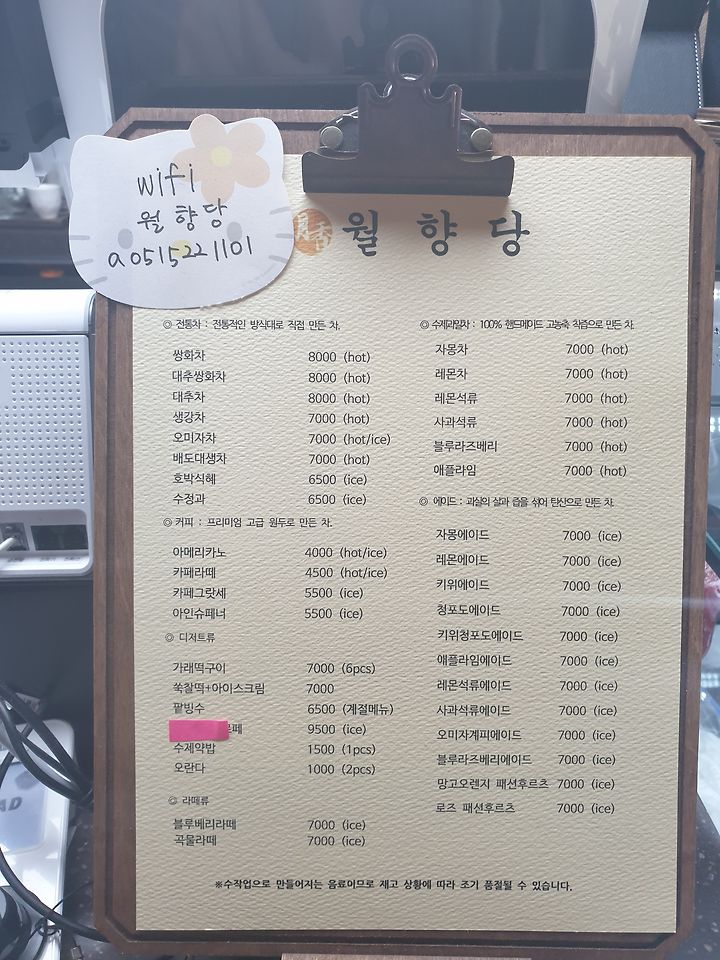 wifi
월향당
a0515221101
月香 월향당
◎ 전통차 : 전통적인 방식대로 직접 만든 차.
쌍화차 8000 (hot)
대추쌍화차 8000 (hot)
대추차 8000 (hot)
생강차 7000 (hot)
오미자차 7000 (hot/ice)
배도대생차 7000 (hot)
호박식혜 6500 (ice)
수정과 6500 (ice)
◎ 커피 : 프리미엄 고급 원두로 만든 차.
아메리카노 4000 (hot/ice)
카페라떼 4500 (hot/ice)
카페그랏세 5500 (ice)
아인슈페너 5500 (ice)
◎ 디저트류
가래떡구이 7000 (6pcs)
쑥찰떡+아이스크림 7000
팥빙수 6500 (계절메뉴)
페 9500 (ice)
수제약밥 1500 (1pcs)
오란다 1000 (2pcs)
◎ 라떼류
블루베리라떼 7000 (ice)
곡물라떼 7000 (ice)
◎ 수제과일차 : 100% 핸드메이드 고농축 착즙으로 만든 차.
자몽차 7000 (hot)
레몬차 7000 (hot)
레몬석류 7000 (hot)
사과석류 7000 (hot)
블루라즈베리 7000 (hot)
애플라임 7000 (hot)
◎ 에이드 : 과실의 살과 즙을 섞어 탄산으로 만든 차.
자몽에이드 7000 (ice)
레몬에이드 7000 (ice)
키위에이드 7000 (ice)
청포도에이드 7000 (ice)
키위청포도에이드 7000 (ice)
애플라임에이드 7000 (ice)
레몬석류에이드 7000 (ice)
사과석류에이드 7000 (ice)
오미자계피에이드 7000 (ice)
블루라즈베리에이드 7000 (ice)
망고오렌지 패션후르츠 7000 (ice)
로즈 패션후르츠 7000 (ice)
※수작업으로 만들어지는 음료이므로 재고 상황에 따라 조기 품절될 수 있습니다.
AD